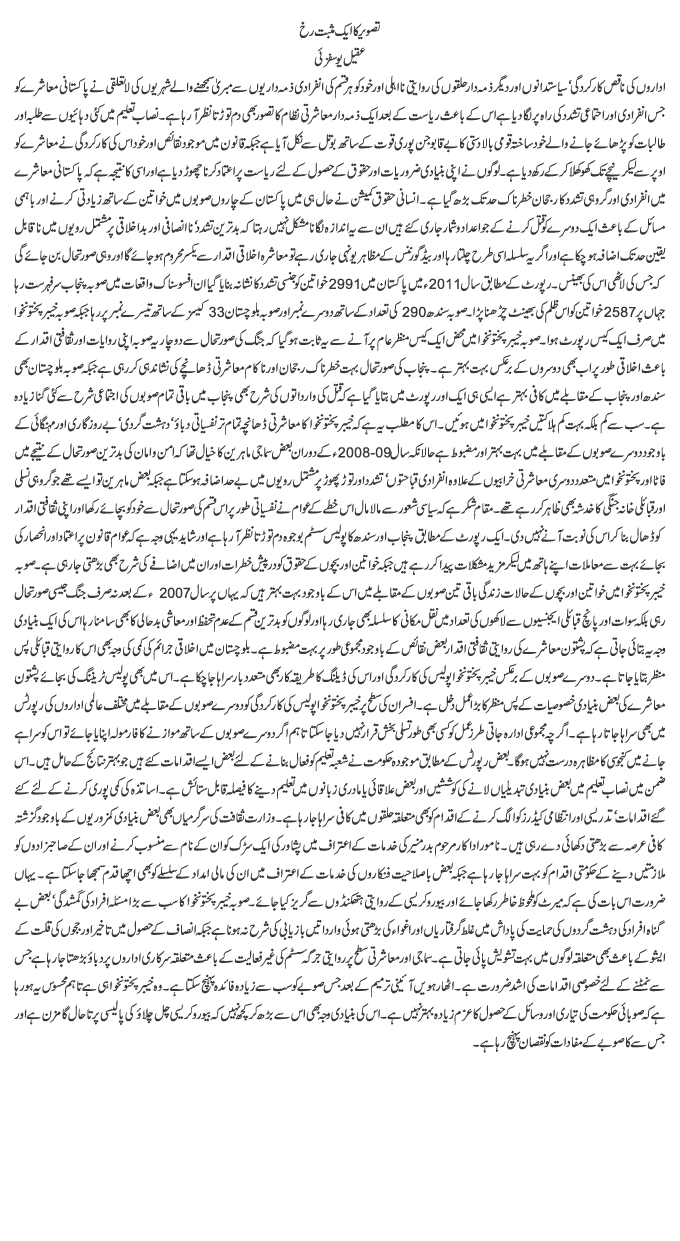 تصویر کا ایک مثبت رخ
عقیل یوسفزئی
اداروں کی ناقص کارکردگی‘ سیاستدانوں اور دیگر ذمہ دار حلقوں کی روایتی نااہلی اور خود کو ہر قسم کی انفرادی ذمہ داریوں سے مبریٰ سمجھنے والے شہریوں کی لاتعلقی نے پاکستانی معاشرے کو
جس انفرادی اور اجتماعی تشدد کی راہ پر لگا دیا ہے اس کے باعث ریاست کے بعد ایک ذمہ دار معاشرتی نظام کا تصور بھی دم توڑتا نظر آ رہا ہے۔ نصاب تعلیم میں کئی دہائیوں سے طلبہ اور
طالبات کو پڑھائے جانے والے خود ساختہ قومی بالادستی کا بے قابو جن پوری قوت کے ساتھ بوتل سے نکل آیا ہے جبکہ قانون میں موجود نقائص اور خود اس کی کارکردگی نے معاشرے کو
اوپر سے لیکر نیچے تک کھوکھلا کر کے رکھ دیا ہے۔ لوگوں نے اپنی بنیادی ضروریات اور حقوق کے حصول کے لئے ریاست پر اعتماد کرنا چھوڑ دیا ہے اور اسی کا نتیجہ ہے کہ پاکستانی معاشرے
میں انفرادی اور گروہی تشدد کا رجحان خطرناک حد تک بڑھ گیا ہے۔ انسانی حقوق کمیشن نے حال ہی میں پاکستان کے چاروں صوبوں میں خواتین کے ساتھ زیادتی کرنے اور باہمی
مسائل کے باعث ایک دوسرے کو قتل کرنے کے جو اعداد و شمار جاری کئے ہیں ان سے یہ اندازہ لگانا مشکل نہیں رہتا کہ بدترین تشدد‘ ناانصافی اور بداخلاقی پر مشتمل رویوں میں ناقابل
یقین حد تک اضافہ ہو چکا ہے اور اگر یہ سلسلہ اسی طرح چلتا رہا اور بیڈ گورننس کے مظاہر یونہی جاری رہے تو معاشرہ اخلاقی اقدار سے یکسر محروم ہو جائے گا اور وہی صورتحال بن جائے گی
کہ جس کی لاٹھی اس کی بھینس۔ رپورٹ کے مطابق سال 2011ء میں پاکستان میں 2991 خواتین کو جنسی تشدد کا نشانہ بنایا گیا ان افسوسناک واقعات میں صوبہ پنجاب سرفہرست رہا
جہاں پر 2587 خواتین کو اس ظلم کی بھینٹ چڑھنا پڑا۔ صوبہ سندھ 290 کی تعداد کے ساتھ دوسرے نمبر اور صوبہ بلوچستان 33 کیسز کے ساتھ تیسرے نمبر پر رہا جبکہ صوبہ خیبر پختونخوا
میں صرف ایک کیس رپورٹ ہوا۔ صوبہ خیبر پختونخوا میں محض ایک کیس منظر عام پر آنے سے یہ ثابت ہو گیا کہ جنگ کی صورتحال سے دوچار یہ صوبہ اپنی روایات اور ثقافتی اقدار کے
باعث اخلاقی طور پر اب بھی دوسروں کے برعکس بہت بہتر ہے۔ پنجاب کی صورتحال بہت خطرناک رجحان اور ناکام معاشرتی ڈھانچے کی نشاندہی کر رہی ہے جبکہ صوبہ بلوچستان بھی
سندھ اور پنجاب کے مقابلے میں کافی بہتر ہے ایسی ہی ایک اور رپورٹ میں بتایا گیا ہے کہ قتل کی وارداتوں کی شرح بھی پنجاب میں باقی تمام صوبوں کی اجتماعی شرح سے کئی گنا زیادہ
ہے۔ سب سے کم بلکہ بہت کم ہلاکتیں خیبر پختونخوا میں ہوئیں۔ اس کا مطلب یہ ہے کہ خیبر پختونخوا کا معاشرتی ڈھانچہ تمام تر نفسیاتی دباؤ‘ دہشت گردی‘ بے روزگاری اور مہنگائی کے
باوجود دوسرے صوبوں کے مقابلے میں بہت بہتر اور مضبوط ہے حالانکہ سال 2008-09ء کے دوران بعض سماجی ماہرین کا خیال تھا کہ امن و امان کی بدترین صورتحال کے نتیجے میں
فاٹا اور پختونخوا میں متعدد دوسری معاشرتی خرابیوں کے علاوہ انفرادی قباحتوں‘ تشدد اور توڑ پھوڑ پر مشتمل رویوں میں بے حد اضافہ ہو سکتا ہے جبکہ بعض ماہرین تو ایسے تھے جو گروہی نسلی
اور قبائلی خانہ جنگی کا خدشہ بھی ظاہر کر رہے تھے۔ مقام شکر ہے کہ سیاسی شعور سے مالا مال اس خطے کے عوام نے نفسیاتی طور پر اس قسم کی صورتحال سے خود کو بچائے رکھا اور اپنی ثقافتی اقدار
کو ڈھال بنا کر اس کی نوبت آنے نہیں دی۔ ایک رپورٹ کے مطابق پنجاب اور سندھ کا پولیس سسٹم بوجوہ دم توڑتا نظر آ رہا ہے اور شاید یہی وجہ ہے کہ عوام قانون پر اعتماد اور انحصار کی
بجائے بہت سے معاملات اپنے ہاتھ میں لیکر مزید مشکلات پیدا کر رہے ہیں جبکہ خواتین اور بچوں کے حقوق کو درپیش خطرات اور ان میں اضافے کی شرح بھی بڑھتی جا رہی ہے۔ صوبہ
خیبر پختونخوا میں خواتین اور بچوں کے حالات زندگی باقی تین صوبوں کے مقابلے میں اس کے باوجود بہت بہتر ہیں کہ یہاں پر سال 2007ء کے بعد نہ صرف جنگ جیسی صورتحال
رہی بلکہ سوات اور پانچ قبائلی ایجنسیوں سے لاکھوں کی تعداد میں نقل مکانی کا سلسلہ بھی جاری رہا اور لوگوں کو بدترین قسم کے عدم تحفظ اور معاشی بدحالی کا بھی سامنا رہا اس کی ایک بنیادی
وجہ یہ بتائی جاتی ہے کہ پشتون معاشرے کی روایتی ثقافتی اقدار بعض نقائص کے باوجود مجموعی طور پر بہت مضبوط ہے۔ بلوچستان میں اخلاقی جرائم کی کمی کی وجہ بھی اس کا روایتی قبائلی پس
منظر بتایا جاتا ہے۔ دوسرے صوبوں کے برعکس خیبر پختونخوا پولیس کی کارکردگی اور اس کی ڈیلنگ کا طریقہ کار بھی متعدد بار سراہا جا چکا ہے۔ اس میں بھی پولیس ٹریننگ کی بجائے پشتون
معاشرے کی بعض بنیادی خصوصیات کے پس منظر کا بڑا عمل دخل ہے۔ افسران کی سطح پر خیبر پختونخوا پولیس کی کارکردگی کو دوسرے صوبوں کے مقابلے میں مختلف عالمی اداروں کی رپورٹس
میں بھی سراہا جاتا رہا ہے۔ اگرچہ مجموعی ادارہ جاتی طرز عمل کو کسی بھی طور تسلی بخش قرار نہیں دیا جا سکتا تاہم اگر دوسرے صوبوں کے ساتھ موازنے کا فارمولہ اپنایا جائے تو اس کو سراہے
جانے میں کنجوسی کا مظاہرہ درست نہیں ہوگا۔ بعض رپورٹس کے مطابق موجودہ حکومت نے شعبہ تعلیم کو فعال بنانے کے لئے بعض ایسے اقدامات کئے ہیں جو بہتر نتائج کے حامل ہیں۔ اس
ضمن میں نصاب تعلیم میں بعض بنیادی تبدیلیاں لانے کی کوششیں اور بعض علاقائی یا مادری زبانوں میں تعلیم دینے کا فیصلہ قابل ستائش ہے۔ اساتذہ کی کمی پوری کرنے کے لئے کئے
گئے اقدامات‘ تدریسی اور انتظامی کیڈرز کو الگ کرنے کے اقدام کو بھی متعلقہ حلقوں میں کافی سراہا جا رہا ہے۔ وزارت ثقافت کی سرگرمیاں بھی بعض بنیادی کمزوریوں کے باوجود گزشتہ
کافی عرصہ سے بڑھتی دکھائی دے رہی ہیں۔ نامور اداکار مرحوم بدر منیر کی خدمات کے اعتراف میں پشاور کی ایک سڑک کو ان کے نام سے منسوب کرنے اور ان کے صاحبزادوں کو
ملازمتیں دینے کے حکومتی اقدام کو بہت سراہا جا رہا ہے جبکہ بعض باصلاحیت فنکاروں کی خدمات کے اعتراف میں ان کی مالی امداد کے سلسلے کو بھی اچھا قدم سمجھا جا سکتا ہے۔ یہاں
ضرورت اس بات کی ہے کہ میرٹ کو ملحوظ خاطر رکھا جائے اور بیوروکریسی کے روایتی ہتھکنڈوں سے گریز کیا جائے۔ صوبہ خیبر پختونخوا کا سب سے بڑا مسئلہ افراد کی گمشدگی‘ بعض بے
گناہ افراد کی دہشت گردوں کی حمایت کی پاداش میں غلط گرفتاریاں اور اغواء کی بڑھتی ہوئی وارداتیں بازیابی کی شرح نہ ہونا ہے جبکہ انصاف کے حصول میں تاخیر اور ججوں کی قلت کے
ایشو کے باعث بھی متعلقہ لوگوں میں بہت تشویش پائی جاتی ہے۔ سماجی اور معاشرتی سطح پر روایتی جرگہ سسٹم کی غیر فعالیت کے باعث متعلقہ سرکاری اداروں پر دباؤ بڑھتا جا رہا ہے جس
سے نمٹنے کے لئے خصوصی اقدامات کی اشد ضرورت ہے۔ اٹھارہویں آئینی ترمیم کے بعد جس صوبے کو سب سے زیادہ فائدہ پہنچ سکتا ہے۔ وہ خیبر پختونخوا ہی ہے تاہم محسوس یہ ہو رہا
ہے کہ صوبائی حکومت کی تیاری اور وسائل کے حصول کا عزم زیادہ بہتر نہیں ہے۔ اس کی بنیادی وجہ بھی اس سے بڑھ کر کچھ نہیں کہ بیوروکریسی چل چلاؤ کی پالیسی پر تاحال گامزن ہے اور
جس سے کا صوبے کے مفادات کو نقصان پہنچ رہا ہے۔